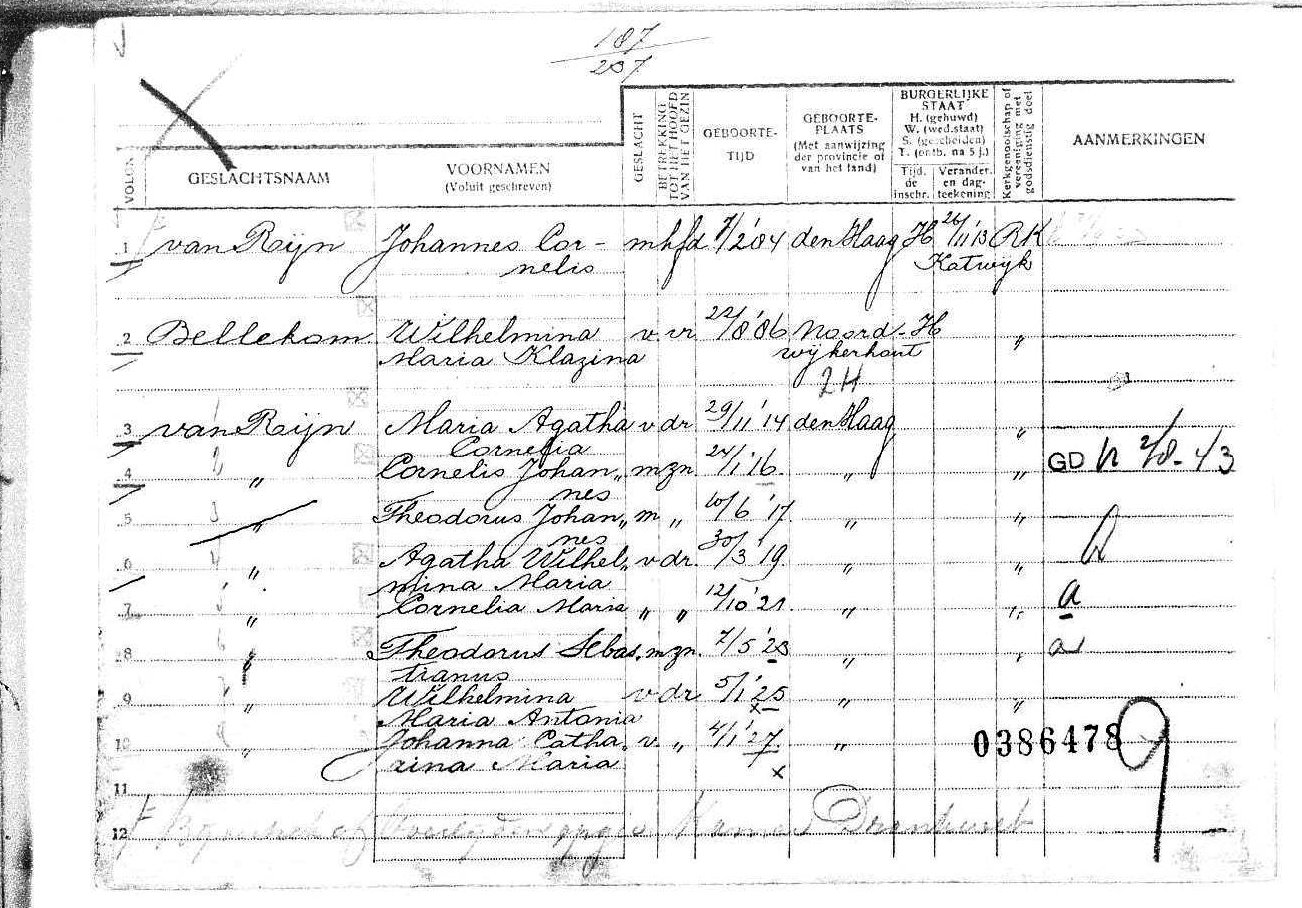 187
237
VOLGN.
GESLACHTSNAAM
VOORNAMEN
(Voluit geschreven)
GESLACHT
BETREKKING
TOT HET HOOFD
VAN HET GEZIN
GEBOORTE-
TIJD
GEBOORTE-
PLAATS
(Met aanwijzing
der provincie of
van het land)
BURGERLIJKE
STAAT
H. (gehuwd)
W. (wed.staat)
S. (gescheiden)
T. (ontb. na 5 j.)
Tijd.
de
inschr.
Verander.
en dag-
teekening
Kerkgenootschap of
vereeniging met
godsdienstig doel
AANMERKINGEN
1 van Rijn Johannes Cor- m hfd 7/2 '84 den Haag H 26/11 '13 RK
nelis Katwyk
2 Bellekom Wilhelmina v vr 22/8 '86 Noord- H "
Maria Klazina wykerhout
2H
3 van Rijn Maria Agatha v dr 29/11 '14 den Haag "
Cornelia
4 " Cornelis Johan " m zn. 24/1 '16. " " GD 2/8-43
nes
5 " Theodorus Johan " m " 10/6 '17. " "
nes
6 " Agatha Wilhel " v dr. 30/3 '19. " "
mina Maria
7 " Cornelia Maria " " 12/10 '21. " " a
8 " Theodorus Sebas. m zn. 7/5 '23 " " a
tianus
9 " Wilhelmina v dr 5/1 '25 " "
Maria Antonia
10 " Johanna Catha " v. " 4/1 '27. "
rina Maria
0386478
9
11
12